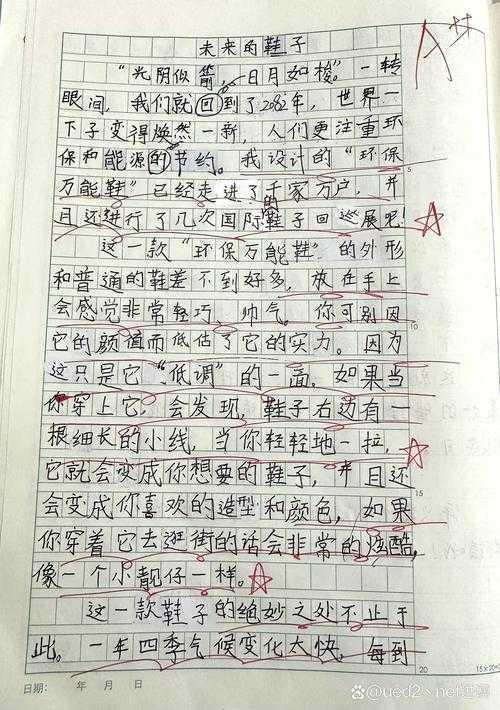 未来的鞋子
A++
“光阴似箭，日月如梭。”一转
眼间，我们就回到了2082年，世界一
下子变得焕然一新，人们更注重环
保和能源的节约。我设计的“环保
万能鞋”已经走进了千家万户，并
且还进行了几次国际的鞋子回巡展吧！
这一款“环保万能鞋”的外形
和普通的鞋差不到好多，放在手上
会感觉非常轻巧、帅气。你可别因
它的颜值而低估了它的实力。因为
这只是它“低调”的一面，如果当
你穿上它，会发现，鞋子右边有一
根细长的小线，当你轻轻地一拉，
它就会变成你想要的鞋子，并且还
会变成你喜欢的造型和颜色，如果
你穿着它去逛街的话会非常的炫酷，
像一个小靓仔一样。
这一款鞋子的绝妙之处不止于
此。一年四季气候变化太快，每到
5
10
15
20
15×20=
日期： 年 月 日
@ued2